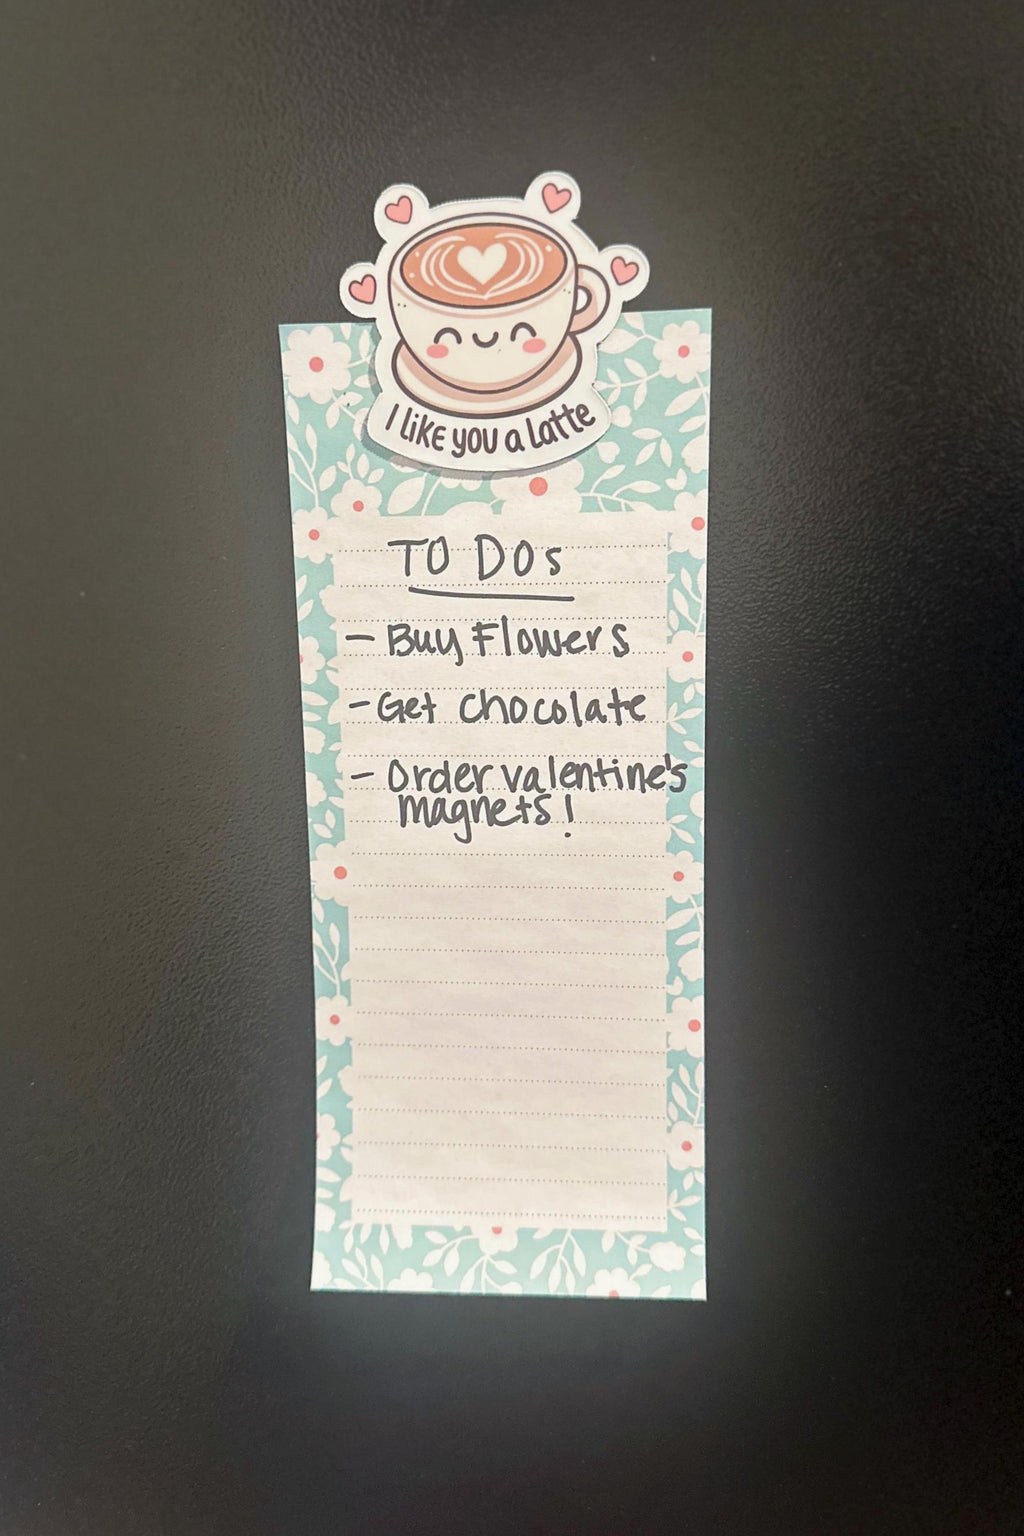 I like you a latte
TO DOs
- Buy Flowers
- Get chocolate
- Order valentine's
magnets!